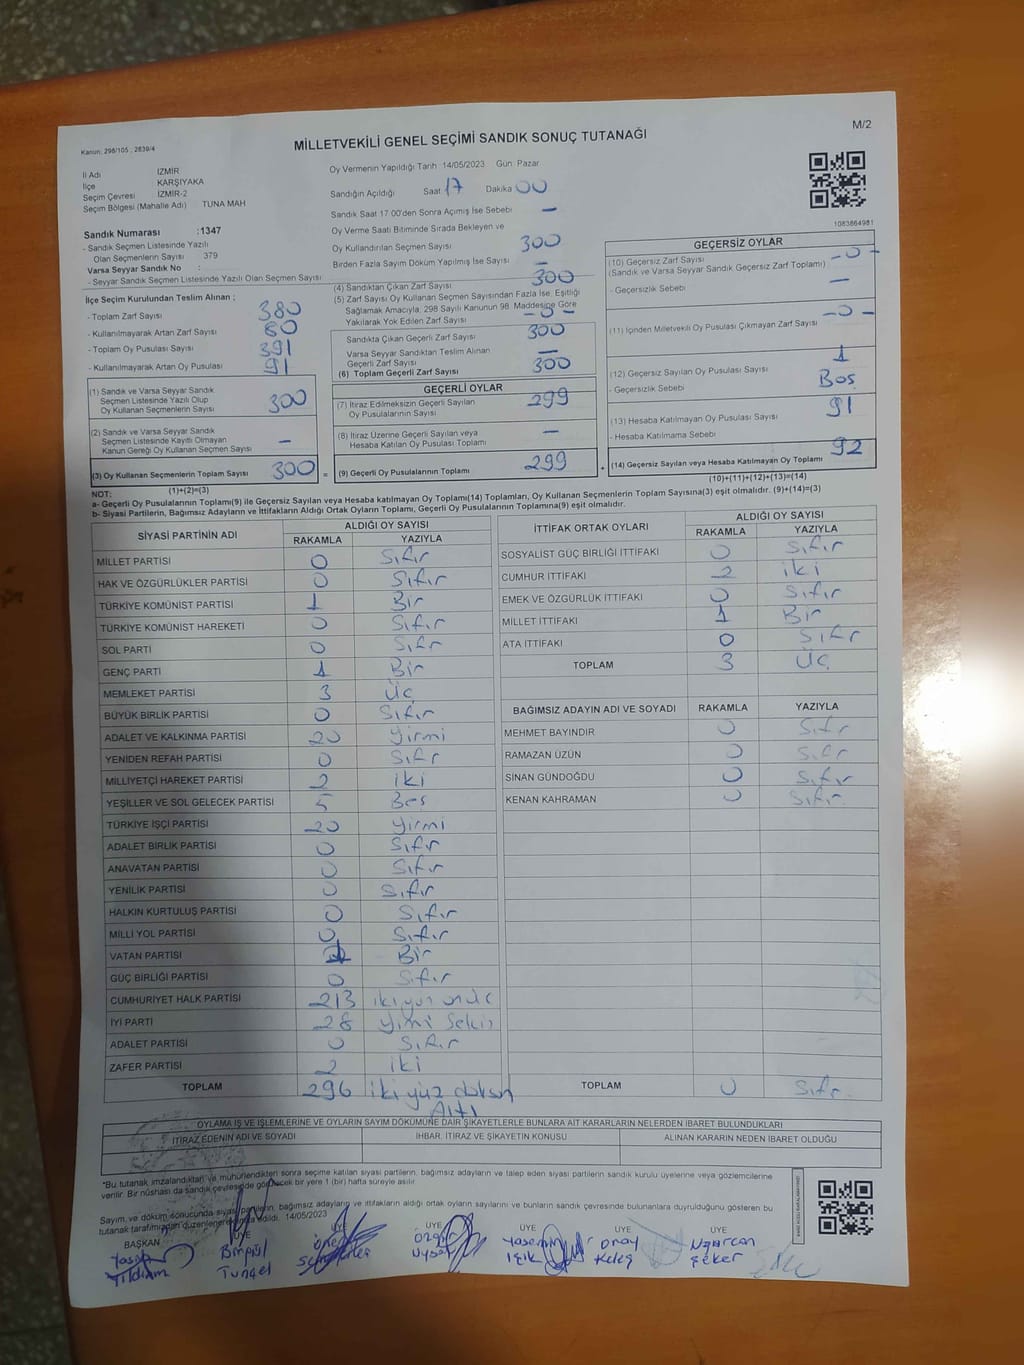 M/2
Kanun: 298/105 , 2839/4
MİLLETVEKİLİ GENEL SEÇİMİ SANDIK SONUÇ TUTANAĞI
İl Adı İZMİR
İlçe KARŞIYAKA
Seçim Çevresi İZMİR-2
Seçim Bölgesi (Mahalle Adı) TUNA MAH
Sandık Numarası :1347
- Sandık Seçmen Listesinde Yazılı
Olan Seçmenlerin Sayısı 379
Varsa Seyyar Sandık No :
- Seyyar Sandık Seçmen Listesinde Yazılı Olan Seçmen Sayısı
Oy Vermenin Yapıldığı Tarih 14/05/2023 Gün: Pazar
Sandığın Açıldığı Saat 17 Dakika 00
Sandık Saat 17 00'den Sonra Açımış İse Sebebi —
Oy Verme Saati Bitiminde Sırada Bekleyen ve
Oy Kullandırılan Seçmen Sayısı 300
Birden Fazla Sayım Döküm Yapılmış İse Sayısı —
1083864981
İlçe Seçim Kurulundan Teslim Alınan ;
- Toplam Zarf Sayısı 380
- Kullanılmayarak Artan Zarf Sayısı 80
- Toplam Oy Pusulası Sayısı 391
- Kullanılmayarak Artan Oy Pusulası 91
(1) Sandık ve Varsa Seyyar Sandık
Seçmen Listesinde Yazılı Olup
Oy Kullanan Seçmenlerin Sayısı 300
(2) Sandık ve Varsa Seyyar Sandık
Seçmen Listesinde Kayıtlı Olmayan
Kanun Gereği Oy Kullanan Seçmen Sayısı —
(3) Oy Kullanan Seçmenlerin Toplam Sayısı 300 =
(1)+(2)=(3)
(4) Sandıktan Çıkan Zarf Sayısı 300
(5) Zarf Sayısı Oy Kullanan Seçmen Sayısından Fazla İse, Eşitliği
Sağlamak Amacıyla, 298 Sayılı Kanunun 98. Maddesine Göre
Yakılarak Yok Edilen Zarf Sayısı -0-
Sandıkta Çıkan Geçerli Zarf Sayısı 300
Varsa Seyyar Sandıktan Teslim Alınan
Geçerli Zarf Sayısı —
(6) Toplam Geçerli Zarf Sayısı 300
GEÇERLİ OYLAR
(7) İtiraz Edilmeksizin Geçerli Sayılan
Oy Pusulalarının Sayısı 299
(8) İtiraz Üzerine Geçerli Sayılan veya
Hesaba Katılan Oy Pusulası Toplamı —
(9) Geçerli Oy Pusulalarının Toplamı 299 +
GEÇERSİZ OYLAR
(10) Geçersiz Zarf Sayısı
(Sandık ve Varsa Seyyar Sandık Geçersiz Zarf Toplamı) -0-
- Geçersizlik Sebebi —
(11) İçinden Milletvekili Oy Pusulası Çıkmayan Zarf Sayısı -0-
(12) Geçersiz Sayılan Oy Pusulası Sayısı 1
- Geçersizlik Sebebi Boş
(13) Hesaba Katılmayan Oy Pusulası Sayısı 91
- Hesaba Katılmama Sebebi
(14) Geçersiz Sayılan veya Hesaba Katılmayan Oy Toplamı 92
(10)+(11)+(12)+(13)=(14)
NOT:
a- Geçerli Oy Pusulalarının Toplamı(9) ile Geçersiz Sayılan veya Hesaba katılmayan Oy Toplamı(14) Toplamları, Oy Kullanan Seçmenlerin Toplam Sayısına(3) eşit olmalıdır. (9)+(14)=(3)
b- Siyasi Partilerin, Bağımsız Adayların ve İttifakların Aldığı Ortak Oyların Toplamı, Geçerli Oy Pusulalarının Toplamına(9) eşit olmalıdır.
SİYASİ PARTİNİN ADI ALDIĞI OY SAYISI
RAKAMLA YAZIYLA
MİLLET PARTİSİ 0 Sıfır
HAK VE ÖZGÜRLÜKLER PARTİSİ 0 Sıfır
TÜRKİYE KOMÜNİST PARTİSİ 1 Bir
TÜRKİYE KOMÜNİST HAREKETİ 0 Sıfır
SOL PARTİ 0 Sıfır
GENÇ PARTİ 1 Bir
MEMLEKET PARTİSİ 3 Üç
BÜYÜK BİRLİK PARTİSİ 0 Sıfır
ADALET VE KALKINMA PARTİSİ 20 Yirmi
YENİDEN REFAH PARTİSİ 0 Sıfır
MİLLİYETÇİ HAREKET PARTİSİ 2 iki
YEŞİLLER VE SOL GELECEK PARTİSİ 5 Beş
TÜRKİYE İŞÇİ PARTİSİ 20 Yirmi
ADALET BİRLİK PARTİSİ 0 Sıfır
ANAVATAN PARTİSİ 0 Sıfır
YENİLİK PARTİSİ 0 Sıfır
HALKIN KURTULUŞ PARTİSİ 0 Sıfır
MİLLİ YOL PARTİSİ 0 Sıfır
VATAN PARTİSİ 1 Bir
GÜÇ BİRLİĞİ PARTİSİ 0 Sıfır
CUMHURİYET HALK PARTİSİ 213 ikiyüz onüç
İYİ PARTİ 28 Yirmi Sekiz
ADALET PARTİSİ 0 Sıfır
ZAFER PARTİSİ 2 iki
TOPLAM 296 ikiyüz doksan
Altı
İTTİFAK ORTAK OYLARI ALDIĞI OY SAYISI
RAKAMLA YAZIYLA
SOSYALİST GÜÇ BİRLİĞİ İTTİFAKI 0 Sıfır
CUMHUR İTTİFAKI 2 iki
EMEK VE ÖZGÜRLÜK İTTİFAKI 0 Sıfır
MİLLET İTTİFAKI 1 Bir
ATA İTTİFAKI 0 Sıfır
TOPLAM 3 Üç
BAĞIMSIZ ADAYIN ADI VE SOYADI RAKAMLA YAZIYLA
MEHMET BAYINDIR 0 Sıfır
RAMAZAN ÜZÜN 0 Sıfır
SİNAN GÜNDOĞDU 0 Sıfır
KENAN KAHRAMAN 0 Sıfır
TOPLAM 0 Sıfır
OYLAMA İŞ VE İŞLEMLERİNE VE OYLARIN SAYIM DÖKÜMÜNE DAİR ŞİKAYETLERLE BUNLARA AİT KARARLARIN NELERDEN İBARET BULUNDUKLARI
İTİRAZ EDENİN ADI VE SOYADI İHBAR, İTİRAZ VE ŞİKAYETİN KONUSU ALINAN KARARIN NEDEN İBARET OLDUĞU
*Bu tutanak imzalandıktan ve mühürlendikten sonra seçime katılan siyasi partilerin, bağımsız adayların ve talep eden siyasi partilerin sandık kurulu üyelerine veya gözlemcilerine
verilir. Bir nüshası da sandık çevresinde görülecek bir yere 1 (bir) hafta süreyle asılır.
Sayım ve döküm sonucunda siyasi partilerin, bağımsız adayların ve ittifakların aldığı ortak oyların sayılarını ve bunların sandık çevresinde bulunanlara duyrulduğunu gösteren bu
tutanak tarafımızdan düzenlenerek imza edildi. 14/05/2023
BAŞKAN ÜYE ÜYE ÜYE ÜYE ÜYE ÜYE
Yıldırım Bingül Tunçel Özgür Uysal Yasemin Işık Onay Keleş Şeker